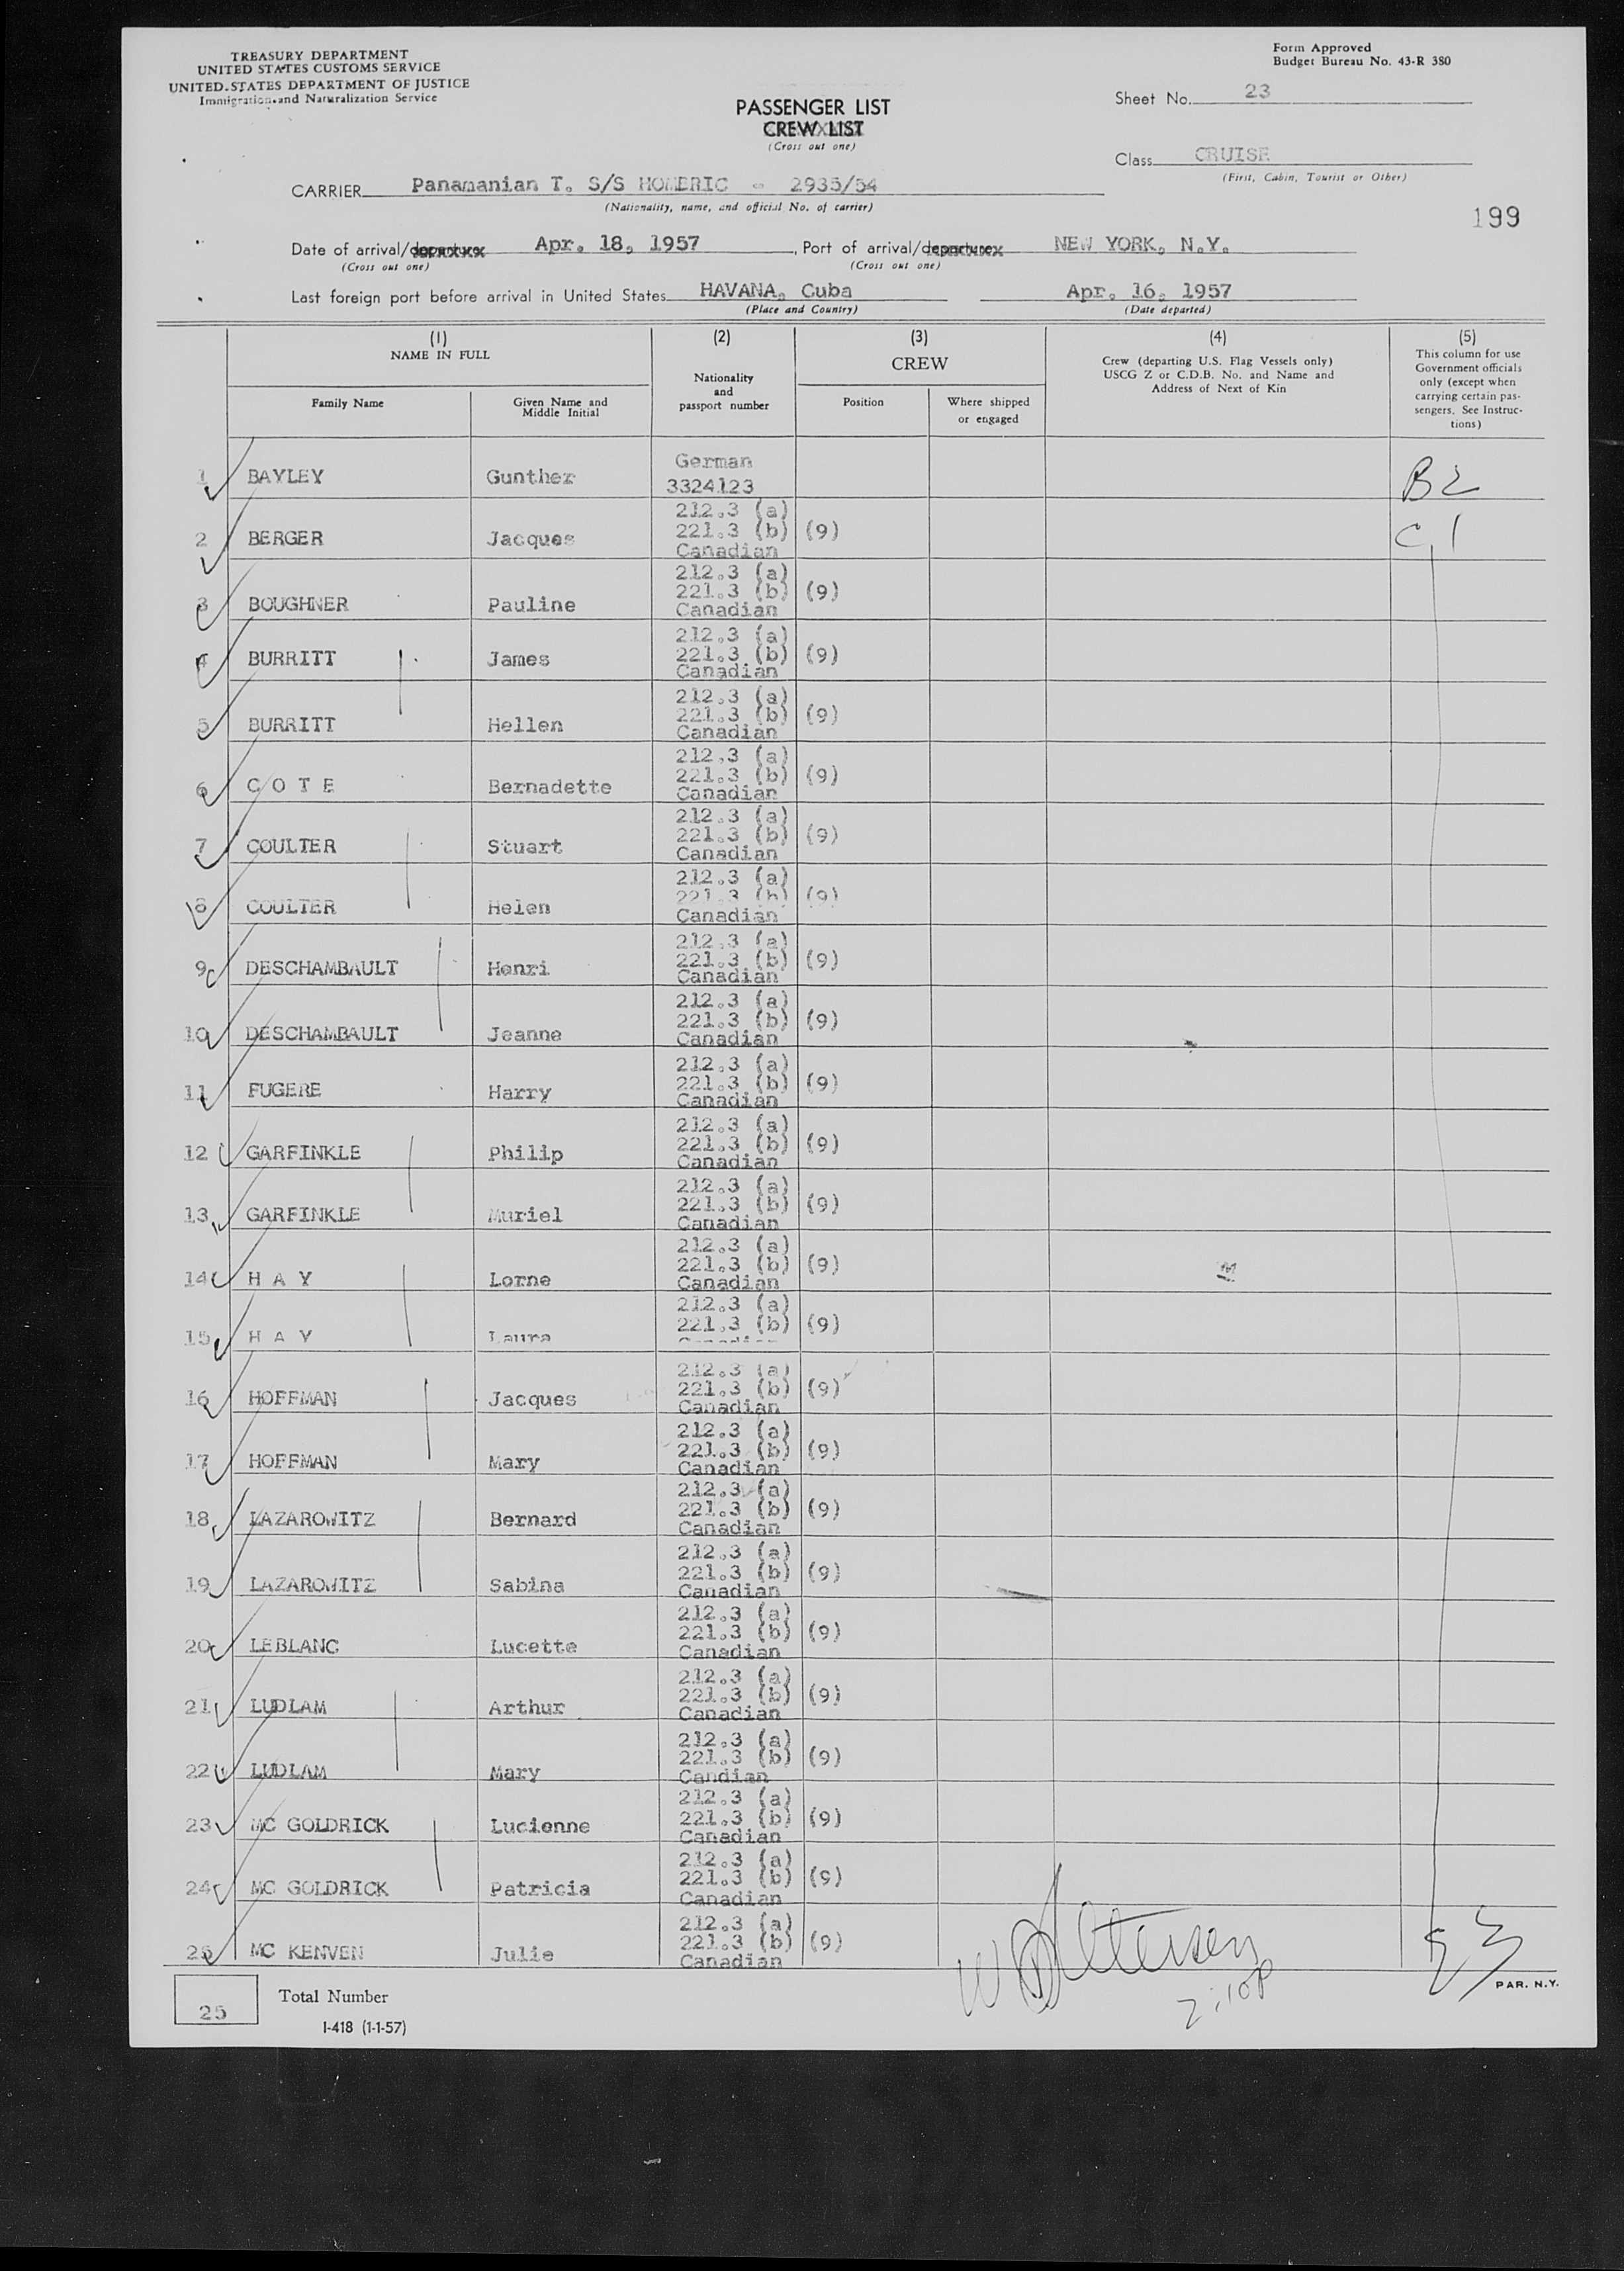 TREASURY DEPARTMENT
UNITED STATES CUSTOMS SERVICE
UNITED STATES DEPARTMENT OF JUSTICE
Immigration and Naturalization Service
Form Approved
Budget Bureau No. 43-R 380
PASSENGER LIST
CREW LIST
(Cross out one)
Sheet No. 23
Class CRUISE
(First, Cabin, Tourist or Other)
CARRIER Panamanian T. S/S HOMERIC - 2935/54
(Nationality, name, and official No. of carrier)
199
Date of arrival/departure Apr. 18, 1957, Port of arrival/departure NEW YORK, N.Y.
(Cross out one) (Cross out one)
Last foreign port before arrival in United States HAVANA, Cuba Apr. 16, 1957
(Place and Country) (Date departed)
(1) NAME IN FULL
Family Name
Given Name and Middle Initial
(2) Nationality and passport number
(3) CREW
Position
Where shipped or engaged
(4) Crew (departing U.S. Flag Vessels only) USCG Z or C.D.B. No. and Name and Address of Next of Kin
(5) This column for use Government officials only (except when carrying certain passengers. See Instructions)
1 BAYLEY Gunther German 3324123 B2
2 BERGER Jacques 212.3 (a) 221.3 (b) (9) Canadian C 1
3 BOUGHNER Pauline 212.3 (a) 221.3 (b) (9) Canadian
4 BURRITT James 212.3 (a) 221.3 (b) (9) Canadian
5 BURRITT Hellen 212.3 (a) 221.3 (b) (9) Canadian
6 C O T E Bernadette 212.3 (a) 221.3 (b) (9) Canadian
7 COULTER Stuart 212.3 (a) 221.3 (b) (9) Canadian
8 COULTER Helen 212.3 (a) 221.3 (b) (9) Canadian
9 DESCHAMBAULT Henri 212.3 (a) 221.3 (b) (9) Canadian
10 DESCHAMBAULT Jeanne 212.3 (a) 221.3 (b) (9) Canadian
11 FUGERE Harry 212.3 (a) 221.3 (b) (9) Canadian
12 GARFINKLE Philip 212.3 (a) 221.3 (b) (9) Canadian
13 GARFINKLE Muriel 212.3 (a) 221.3 (b) (9) Canadian
14 H A Y Lorne 212.3 (a) 221.3 (b) (9) Canadian
15 H A Y Laura 212.3 (a) 221.3 (b) (9) Canadian
16 HOFFMAN Jacques 212.3 (a) 221.3 (b) (9) Canadian
17 HOFFMAN Mary 212.3 (a) 221.3 (b) (9) Canadian
18 LAZAROWITZ Bernard 212.3 (a) 221.3 (b) (9) Canadian
19 LAZAROWITZ Sabina 212.3 (a) 221.3 (b) (9) Canadian
20 LEBLANC Lucette 212.3 (a) 221.3 (b) (9) Canadian
21 LUDLAM Arthur 212.3 (a) 221.3 (b) (9) Canadian
22 LUDLAM Mary 212.3 (a) 221.3 (b) (9) Candian
23 MC GOLDRICK Lucienne 212.3 (a) 221.3 (b) (9) Canadian
24 MC GOLDRICK Patricia 212.3 (a) 221.3 (b) (9) Canadian
25 MC KENVEN Julie 212.3 (a) 221.3 (b) (9) Canadian
2:10P
PAR. N.Y.
25 Total Number
I-418 (1-1-57)